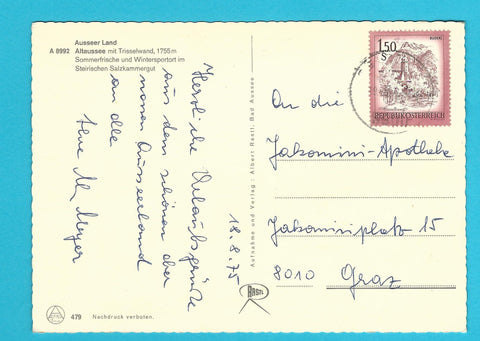 Ausseer Land
A 8992 Altaussee mit Trisselwand, 1755 m
Sommerfrische und Wintersportort im
Steirischen Salzkammergut
1.50
S
REPUBLIK ÖSTERREICH
18.8.75
Herzliche Urlaubsgrüße
aus dem schönen aber
nassen Ausseerland
an alle
Meyer
Aufnahme und Verlag: Albert Rastl, Bad Aussee
An die
Jakomini-Apotheke
Jakominiplatz 15
8010 Graz
RASTL
479 Nachdruck verboten.